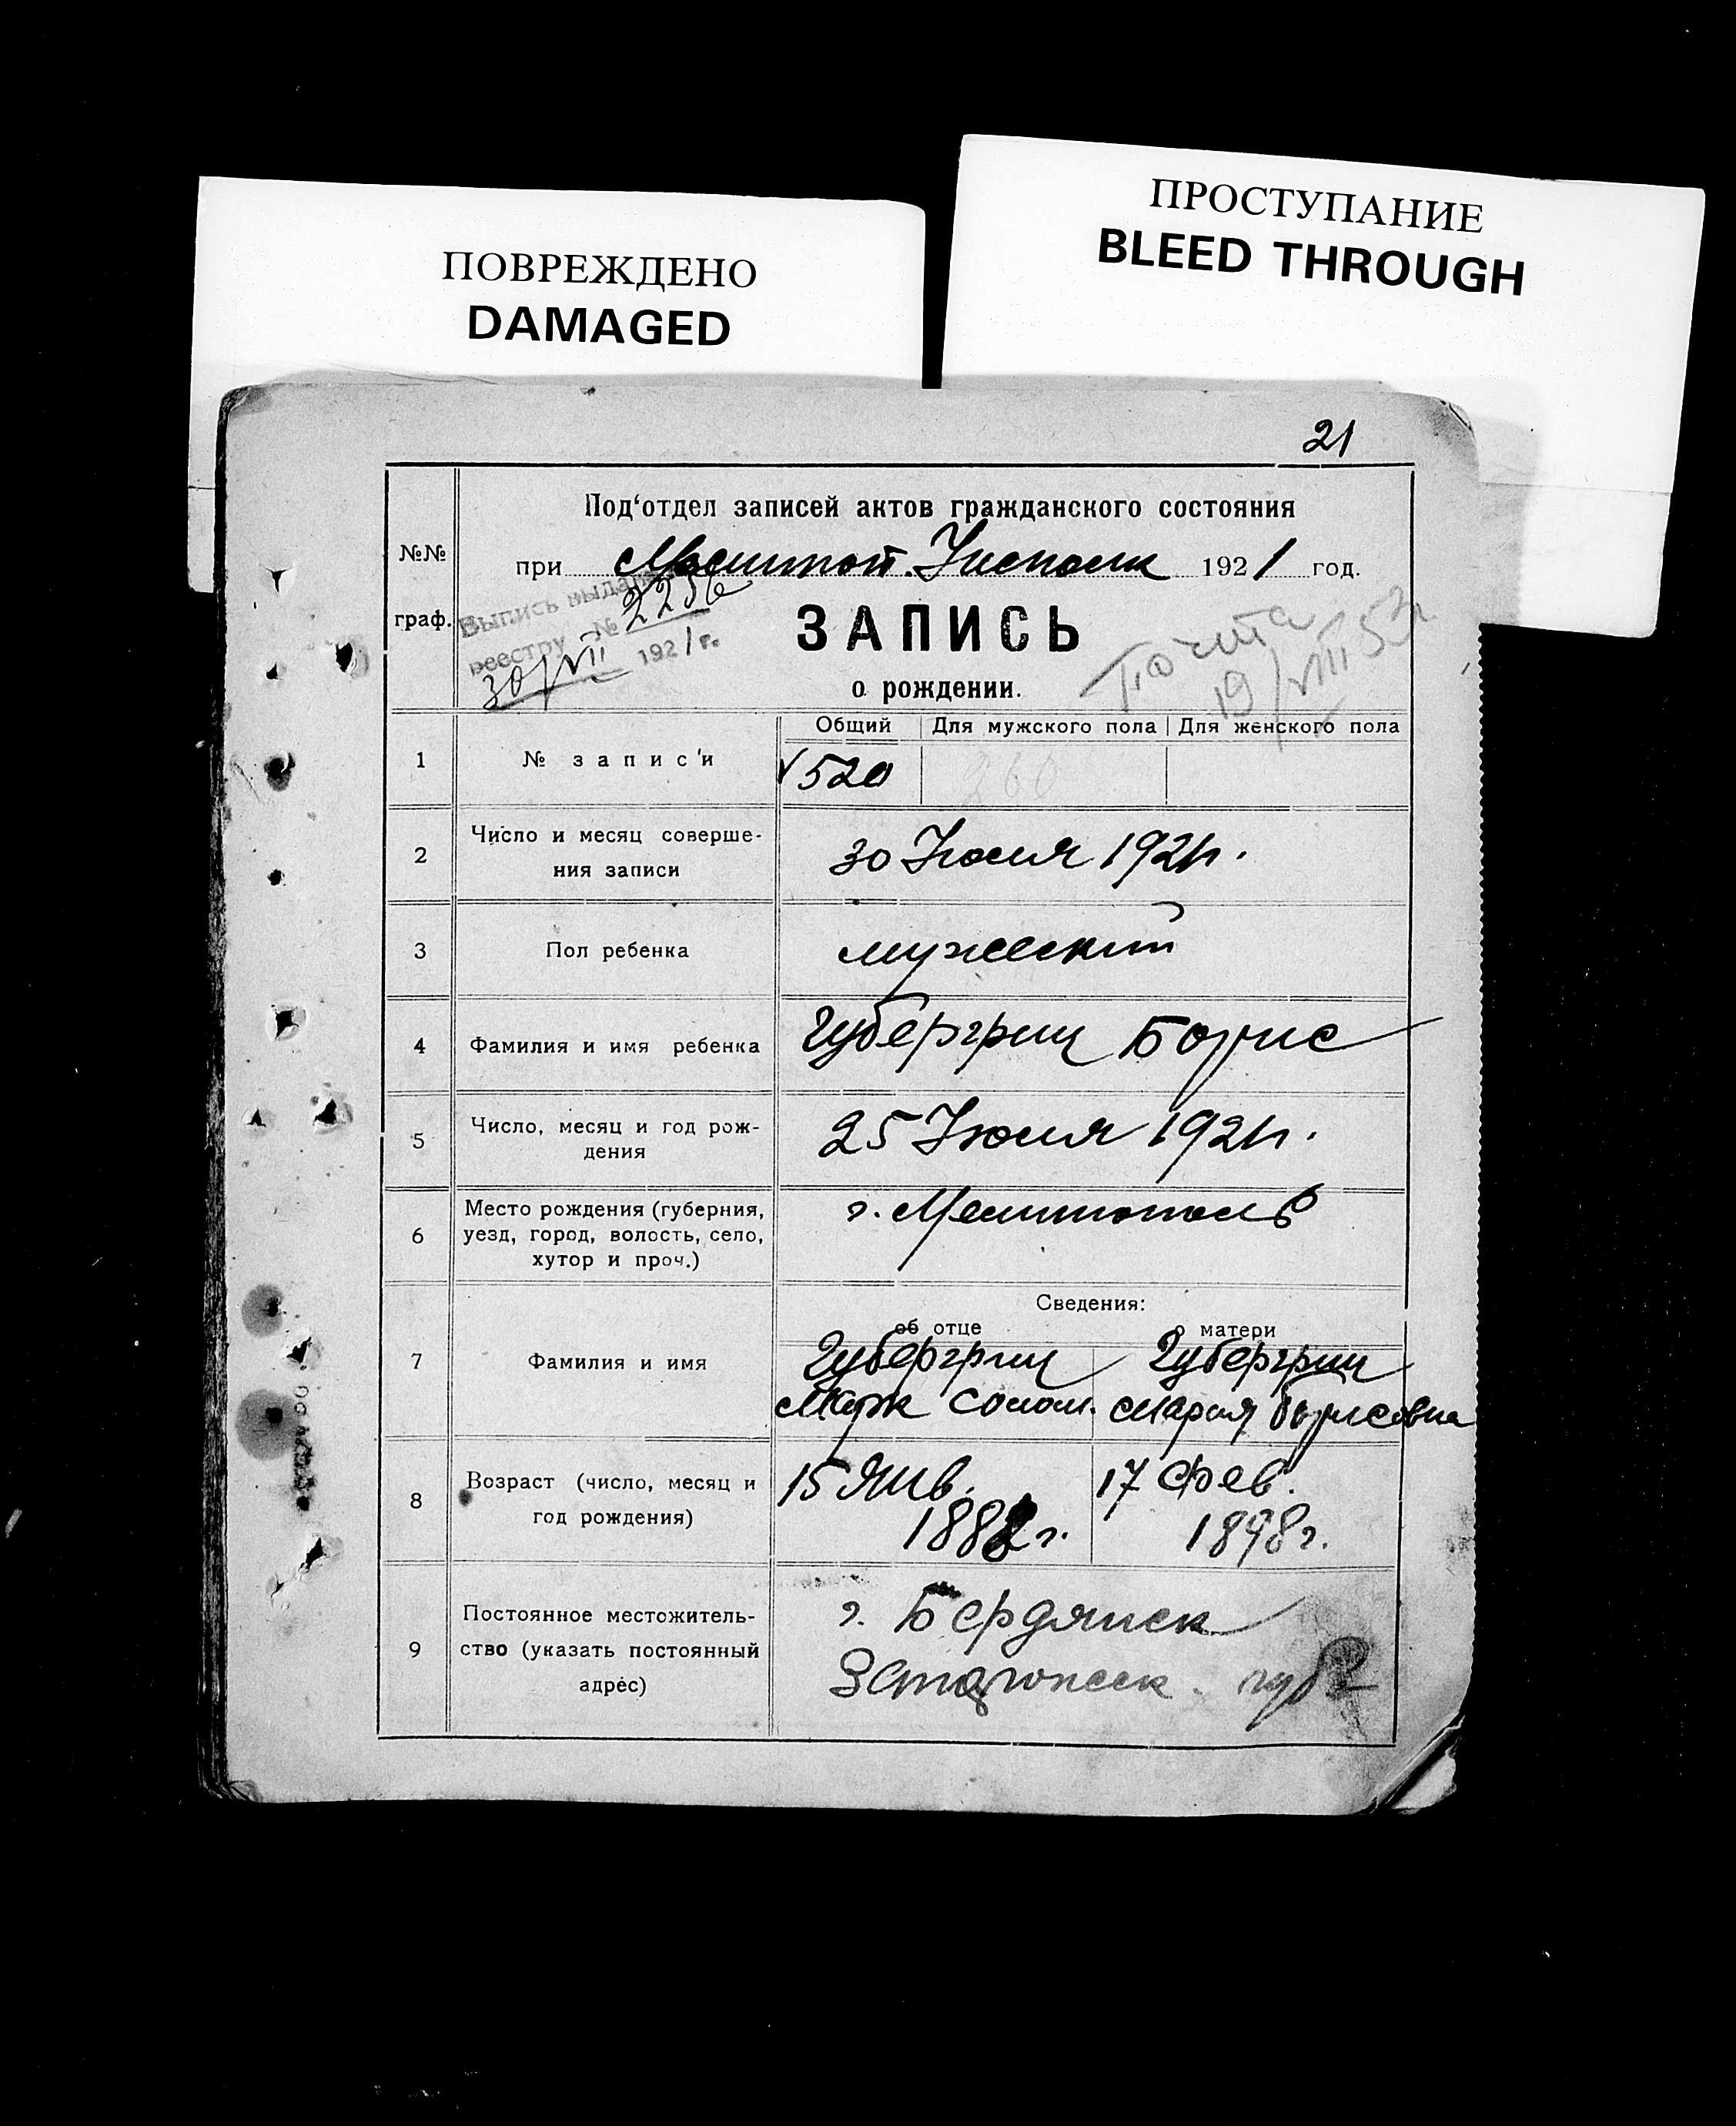 ПРОСТУПАНИЕ
BLEED THROUGH
ПОВРЕЖДЕНО
DAMAGED
21
Под‘отдел записей актов гражданского состояния
№№ граф.
при Мелитоп. Исполк 1921 год.
Выпись выдана
реестру № 2256
30/VII 1921 г.
ЗАПИСЬ
о рождении.
Почта
19/VIII 53г
Общий Для мужского пола Для женского пола
1 № записи 520 260
2 Число и месяц соверше-
ния записи
30 Июля 1921г.
3 Пол ребенка мужеский
4 Фамилия и имя ребенка Губергриц Борис
5 Число, месяц и год рож-
дения
25 Июля 1921г.
6 Место рождения (губерния,
уезд, город, волость, село,
хутор и проч.)
г. Мелитополь
Сведения:
об отце о матери
7 Фамилия и имя
Губергриц
Марк Солом.
Губергриц
Мария Борисовна
8 Возраст (число, месяц и
год рождения)
15 Янв.
1882г.
17 Фев.
1898г.
9 Постоянное местожитель-
ство (указать постоянный
адрес)
г. Бердянск
губ